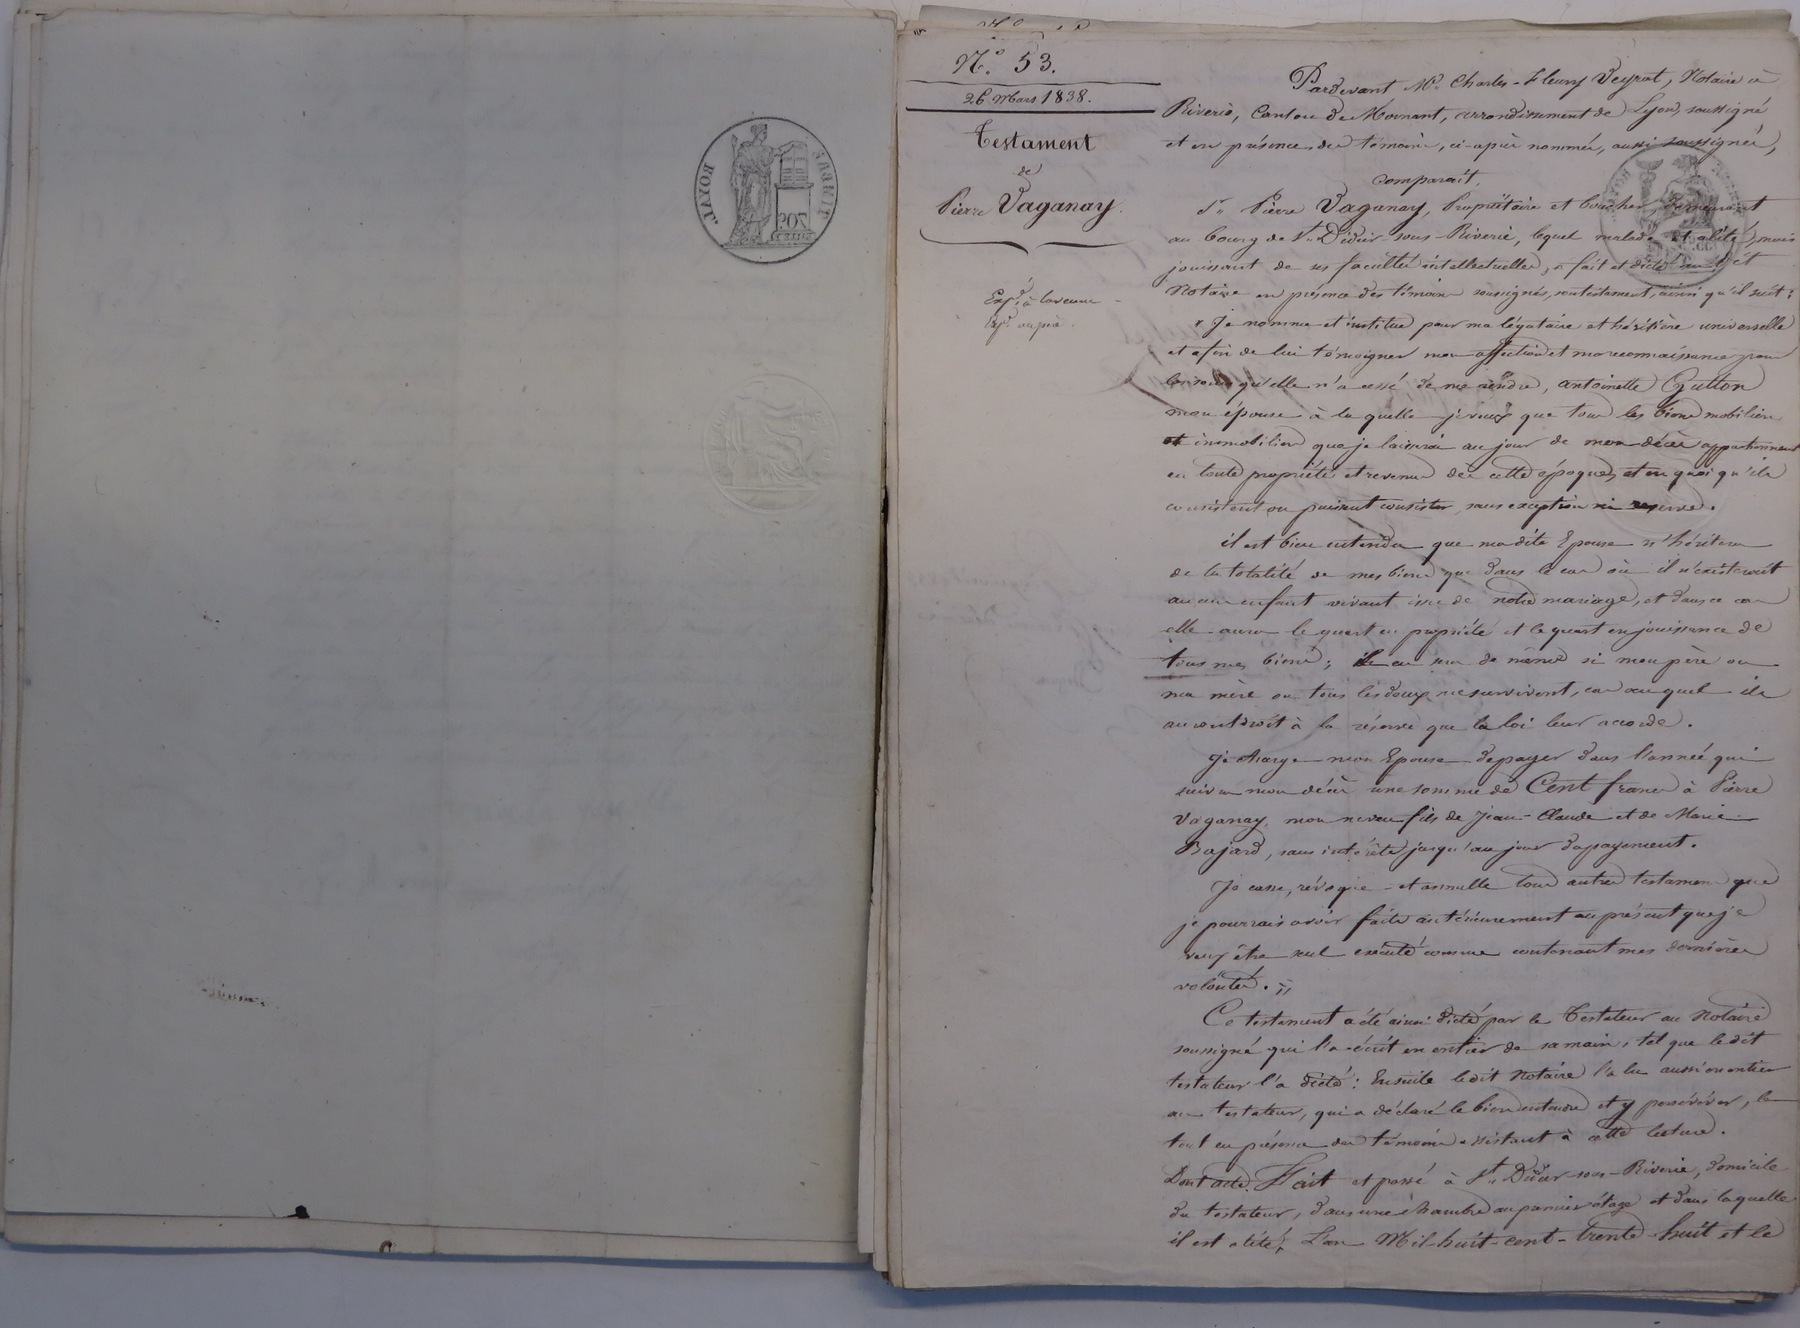 N.° 53.
26 Mars 1838.
Testament
de
Pierre Vaganay.
Exp.é à la veuve
Exp.é au père.
Pardevant M.e Charles-Fleury Veyrat, Notaire à
Riverie, Canton de Mornant, arrondissement de Lyon, soussigné
et en présence des témoins, ci-après nommés, aussi soussignés,
Comparaît,
S.r Pierre Vaganay, Propriétaire et boucher, demeurant
au bourg de S.t Didier-sous-Riverie, lequel malade et alité, mais
jouissant de ses facultés intellectuelles, a fait et dicté audit
Notaire en présence des témoins soussignés, son testament, ainsi qu'il suit:
« Je nomme et institue pour ma légataire et héritière universelle
et afin de lui témoigner mon affection et ma reconnaissance pour
les soins qu'elle n'a cessé de me rendre, antoinette Gutton
mon épouse à la quelle je veux que tous les biens mobiliers
et immobiliers que je laisserai au jour de mon décès appartiennent
en toute propriété et revenus dès cette époque, et en quoi qu'ils
consistent ou puissent consister, sans exception ni reserve.
il est bien entendu que madite Epouse n'héritera
de la totalité de mes biens que dans le cas où il n'existerait
aucun enfant vivant issu de notre mariage, et dans ce cas
elle aura le quart en propriété et le quart en jouissance de
tous mes biens; il en sera de même si mon père ou
ma mère ou tous les deux me survivent, cas auquel ils
auront droit à la réserve que la loi leur accorde.
Je charge mon Epouse de payer dans l'année qui
suivra mon décès une somme de Cent francs à Pierre
Vaganay, mon neveu fils de Jean-Claude et de Marie
Bajard, sans intérêts jusqu'au jour du payement.
Je casse, révoque et annulle tous autres testamens que
je pourrais avoir faits antérieurement au présent que je
veux être seul exécuté comme contenant mes dernières
volontés. »
Ce testament a été ainsi dicté par le Testateur au Notaire
soussigné qui l'a écrit en entier de sa main, tel que le dit
testateur l'a dicté: Ensuite ledit Notaire l'a lu aussi en entier
au testateur, qui a déclaré le bien entendre et y persévérer, le
tout en présence des témoins assistant à cette lecture.
Dont acte. Fait et passé à S.t Didier-sous-Riverie, domicile
du testateur, dans une chambre au premier étage et dans laquelle
il est alité; L'an Mil-huit-cent-trente-huit et le